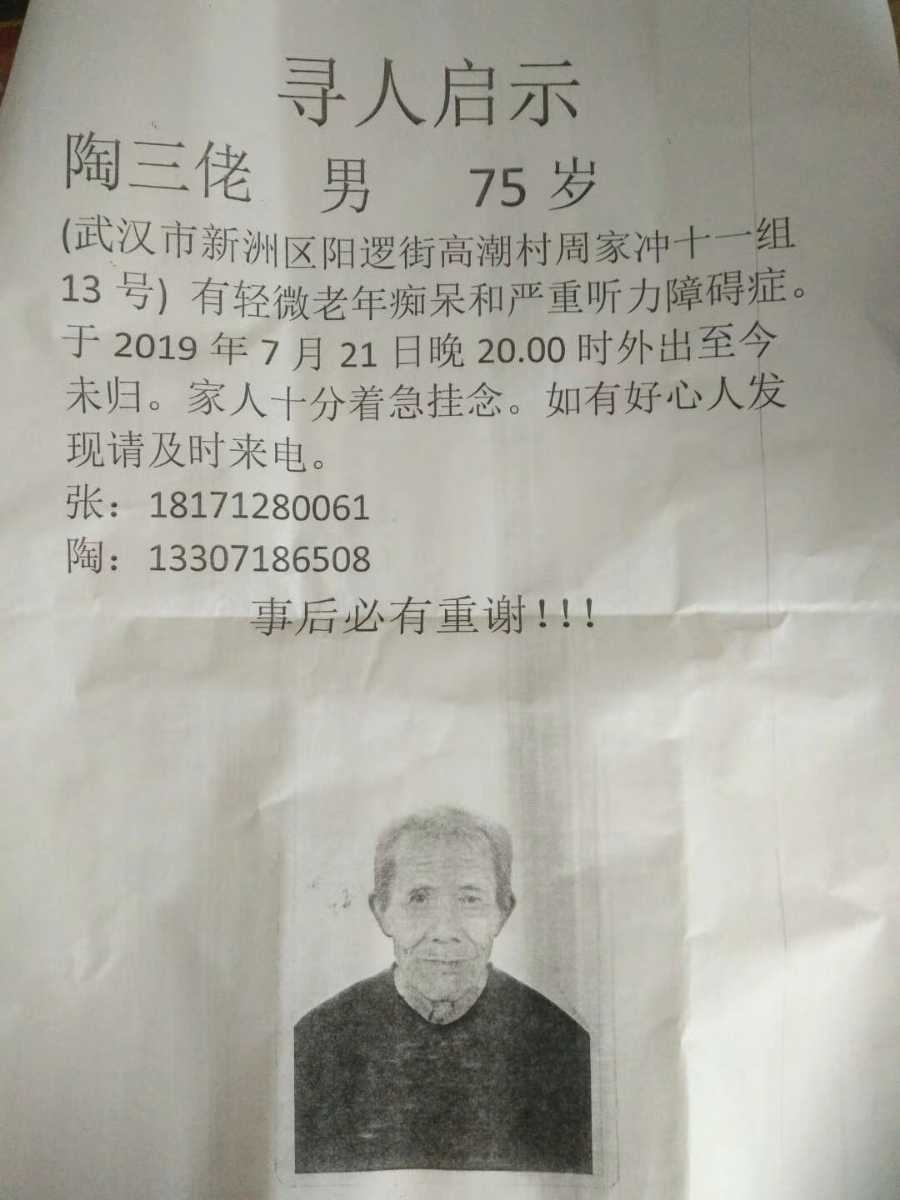 寻人启示
陶三佬 男 75 岁
(武汉市新洲区阳逻街高潮村周家冲十一组
13 号) 有轻微老年痴呆和严重听力障碍症。
于 2019 年 7 月 21 日晚 20.00 时外出至今
未归。家人十分着急挂念。如有好心人发
现请及时来电。
张：18171280061
陶：13307186508
事后必有重谢!!!